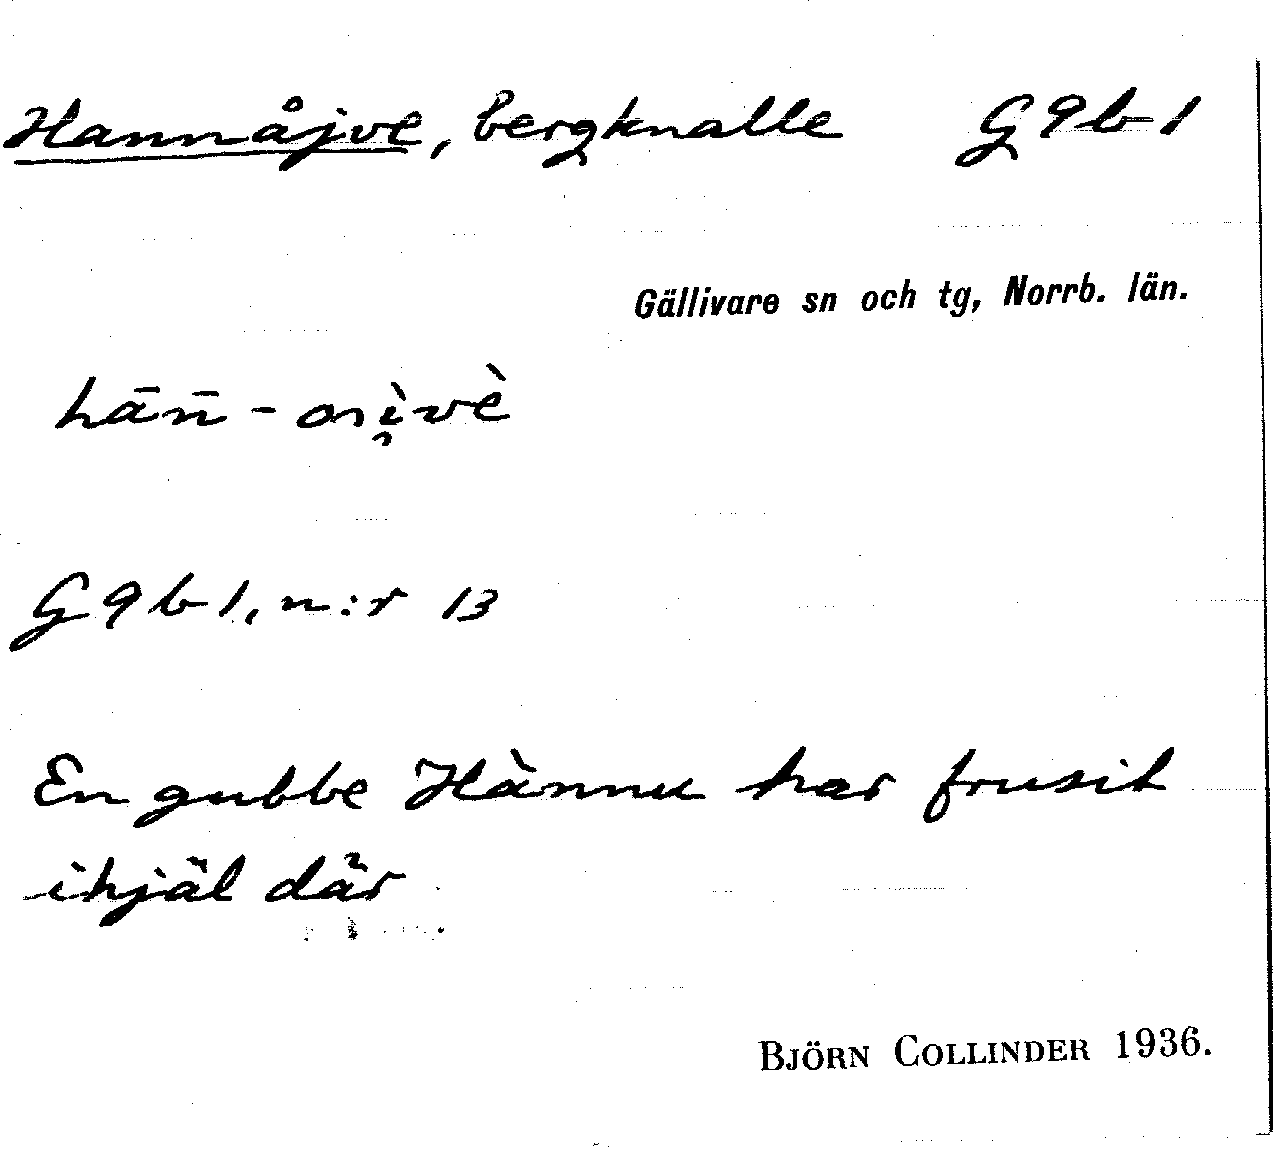 Hannåjve, bergknalle G 9 b 1
Gällivare sn och tg, Norrb. län.
hān̄ - orì̯vè
G 9 b 1, n:r 13
En gubbe Hànnu har frusit
ihjäl där
BJÖRN COLLINDER 1936.